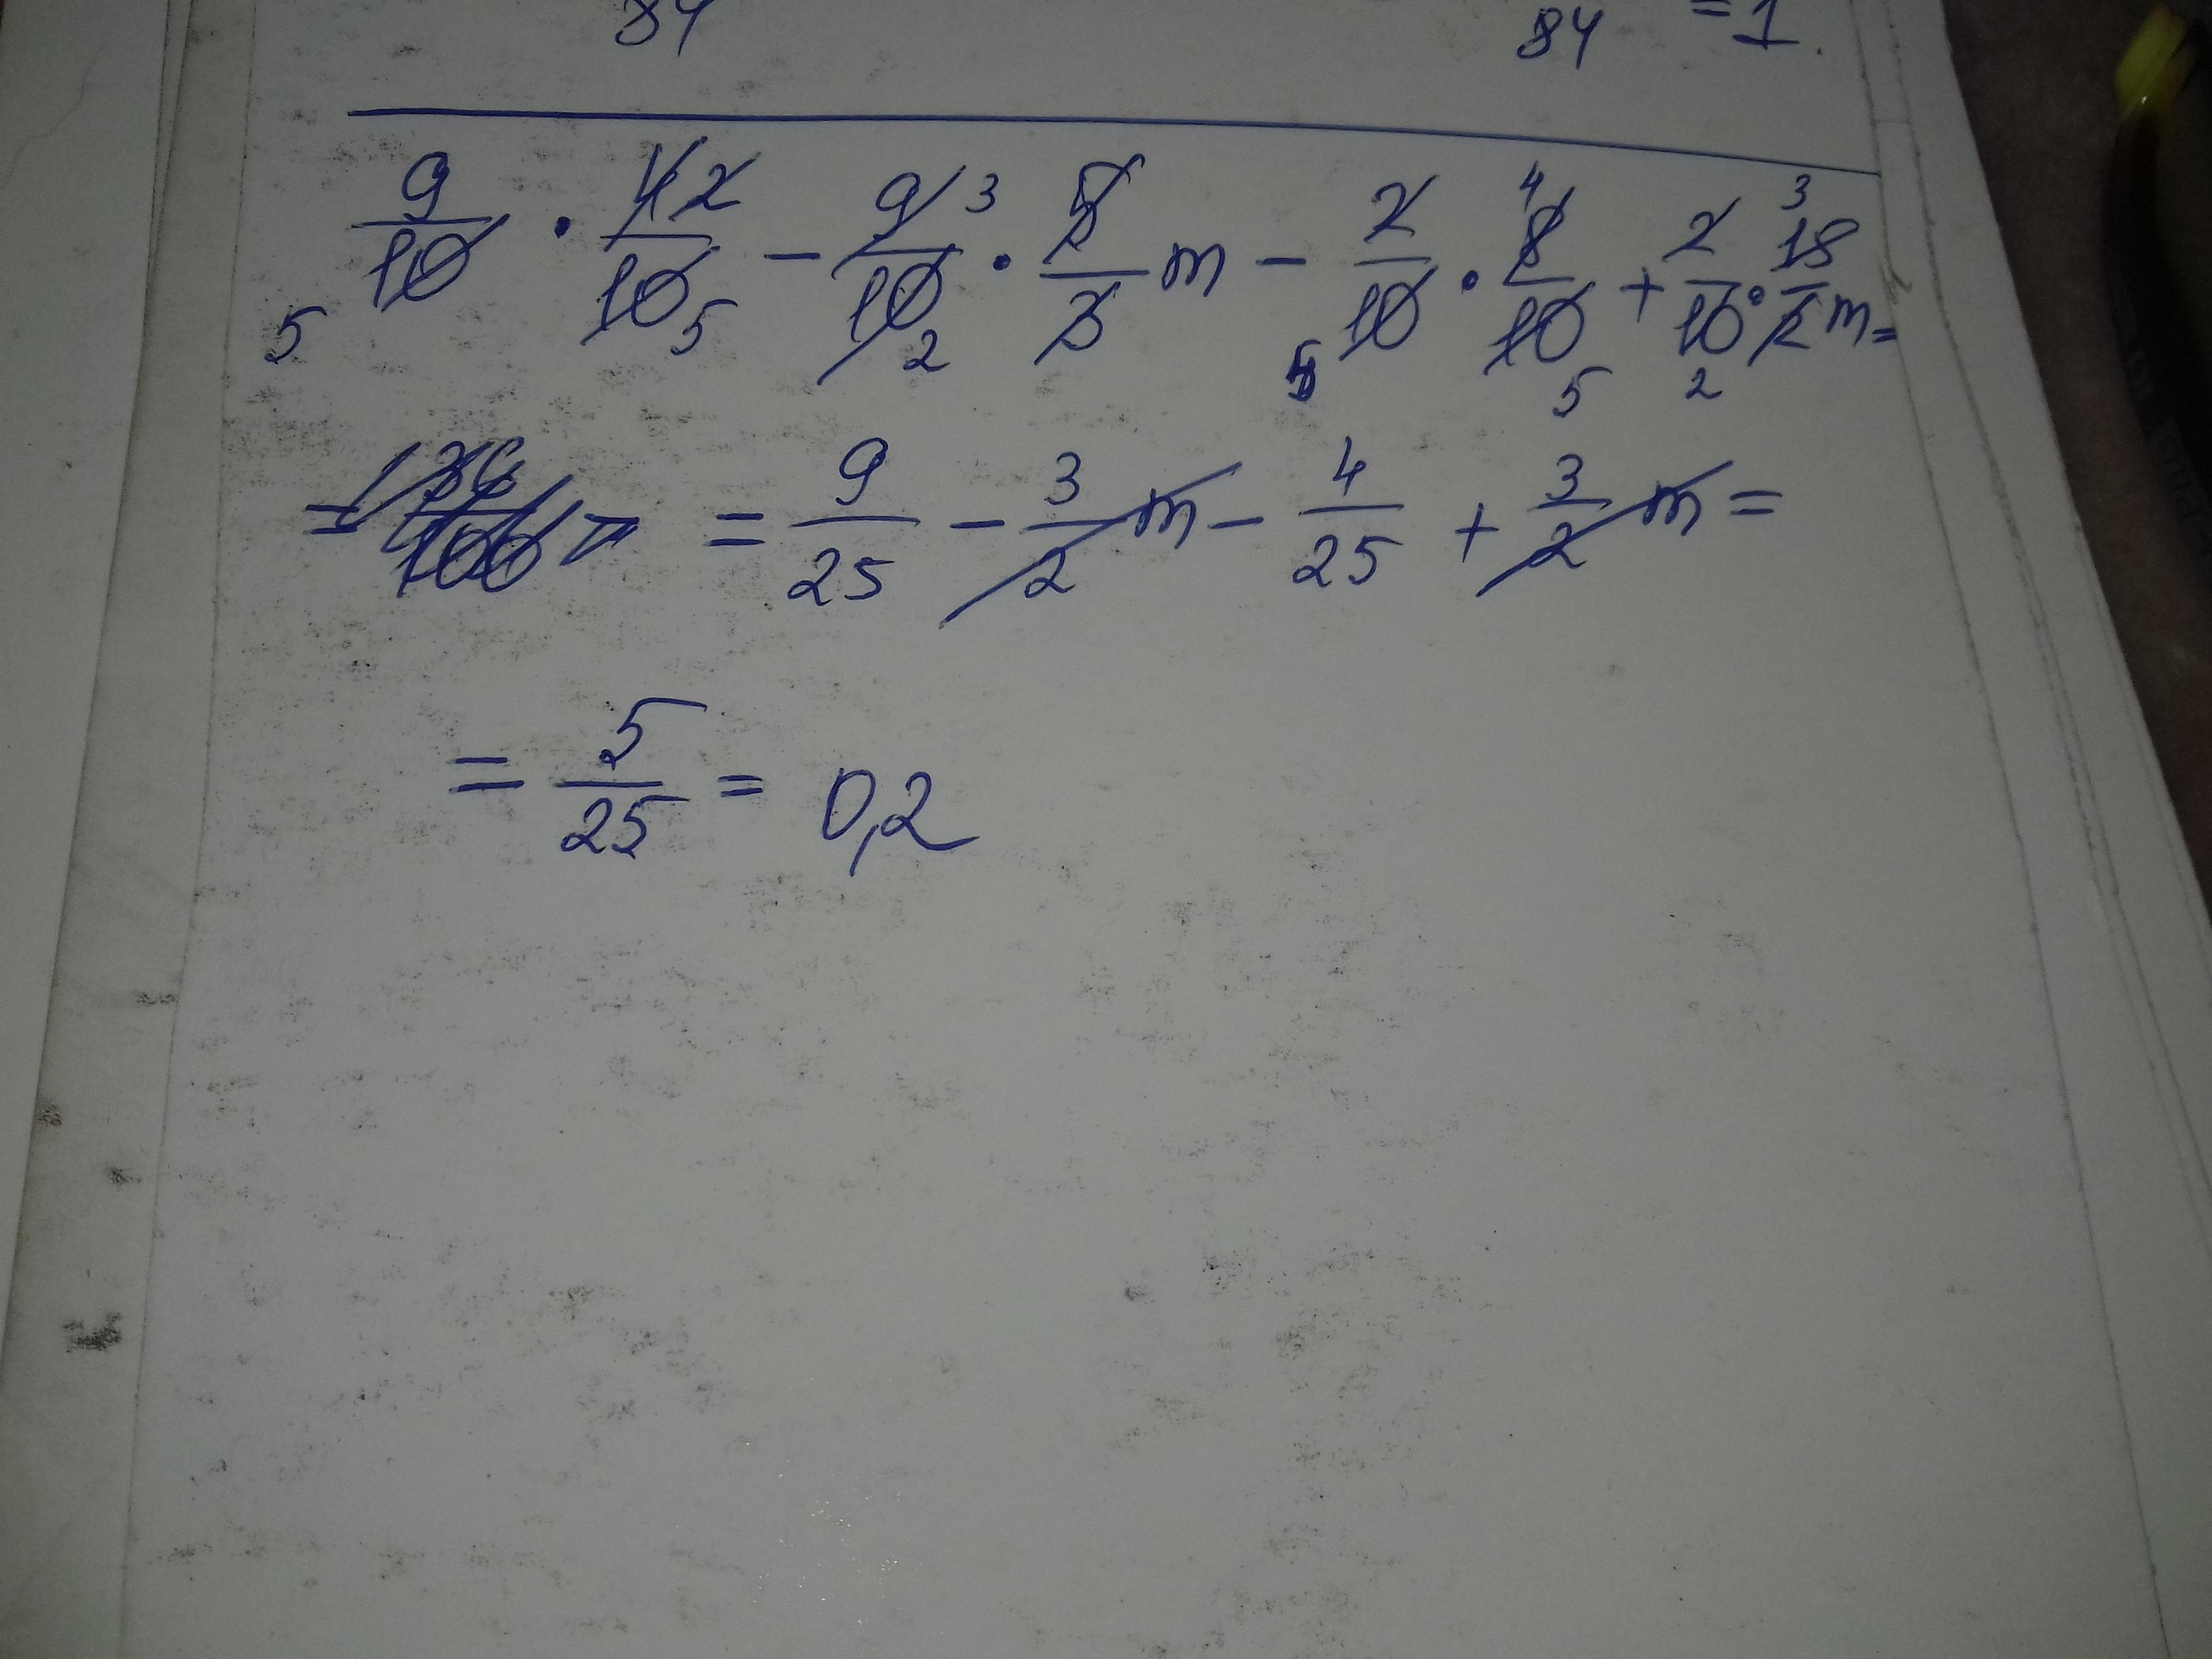 84 84 = 1.
9/10 · 4/10 - 9/10 · 5/3 m - 2/10 · 8/10 + 2/10 · 15/2 m =
= 36/100 = 9/25 - 3/2 m - 4/25 + 3/2 m =
= 5/25 = 0,2